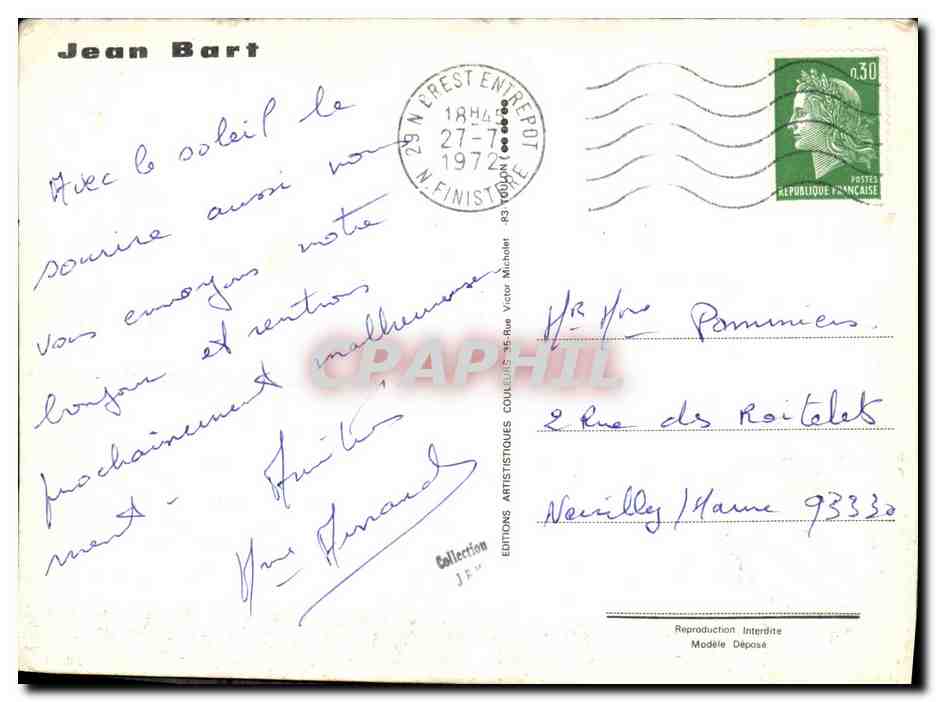 Jean Bart
Avec le soleil le
sourire aussi nous
vous envoyons notre
bonjour et rentrons
prochainement malheureuse
ment - Amitiés
Mme
Collection
29 N BREST ENTREPOT
18H45
27-7
1972
N. FINISTERE
0,30
POSTES
REPUBLIQUE FRANÇAISE
EDITIONS ARTISTISTIQUES COULEURS 35-Rue Victor Micholet -83 TOULON
Mr Mme Pommiers.
2 Rue des Roitelets
Neuilly / Marne 93330
Reproduction Interdite
Modèle Déposé
CPAPHIL